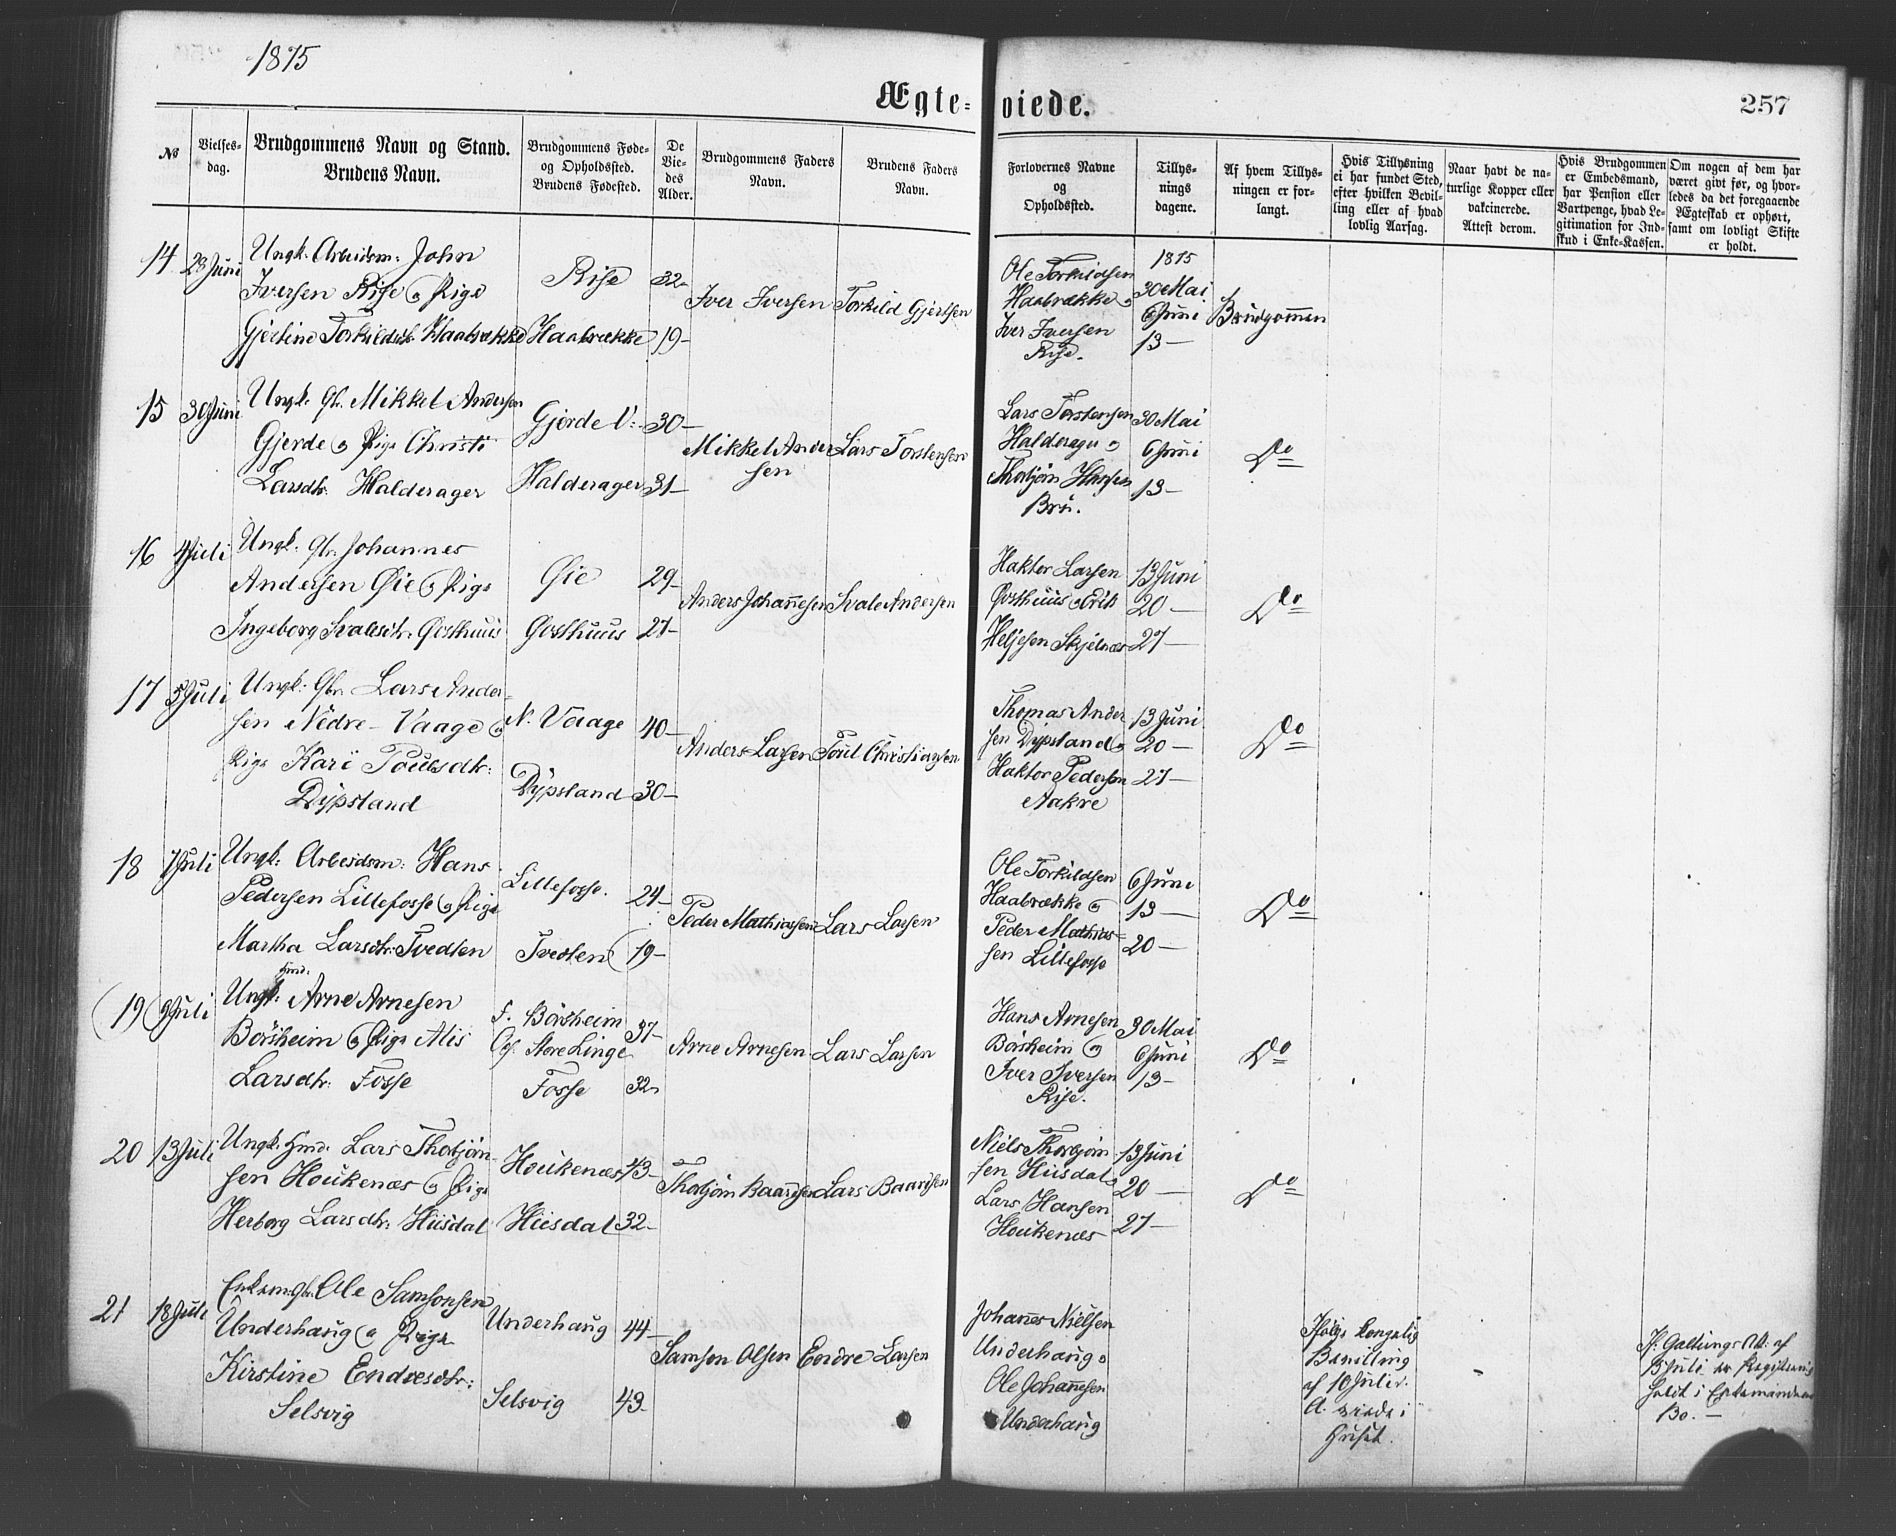 1875
Ægte=
viede.
257
№
Vielses-
dag.
Brudgommens Navn og Stand.
Brudens Navn.
Brudgommens Føde-
og Opholdssted.
Brudens Fødested.
De
Vie-
des
Alder.
Brudgommens Faders
Navn.
Brudens Faders
Navn.
Forlovernes Navne
og
Opholdssted.
Tillys-
nings
dagene.
Af hvem Tillys-
ningen er for-
langt.
Hvis Tillysning
ei har fundet Sted,
efter hvilken Bevil-
ling eller af hvad
lovlig Aarsag.
Naar havt de na-
turlige Kopper eller
vakcinerede.
Attest derom.
Hvis Brudgommen
er Embedsmand,
har Pension eller
Vartpenge, hvad Le-
gitimation for Ind-
skud i Enke-Kassen.
Om nogen af dem har
været givt før, og hvor-
ledes da det foregaaende
Ægteskab er ophørt,
samt om lovligt Skifte
er holdt.
14
28 Juni
Ungk. Arbeidsm: John
Iversen Rise og Pige
Gjertine Torkildsdt. Haabrække
Rise
Haabrække
32
19
Iver Iversen
Torkild Gjertsen
Ole Torkildsen
Haabrække og
Iver Iversen
Rise.
1875
30 Mai
6 Juni
13 —
Brudgommen
15
30 Juni
Ungk. Gbr. Mikkel Andersen
Gjerde og Pige Christi
Larsdtr. Halderager
Gjerde V:
Halderager
30
31
Mikkel Ander
sen
Lars Torstensen
Lars Torstensen
Halderager og
Thorbjørn Hansen
Bru.
30 Mai
6 Juni
13 —
Do
16
4 Juli
Ungk. Gbr. Johannes
Andersen Øie og Pige
Ingeborg Svalesdtr. Gosthuus
Øie
Gosthuus
29
27
Anders Johannesen
Svale Andersen
Haktor Larsen
Gosthuus og Erik
Heljesen Skjelnæs
13 Juni
20 —
27 —
Do
17
5 Juli
Ungk: Gbr. Lars Ander-
sen Nedre-Vaage og
Pige Kari Poulsdtr:
Dypsland
N. Vaage
Dypsland
40
30
Anders Larsen
Poul Christiansen
Thomas Ander
sen Dypsland og
Haktor Pedersen
Aakre
13 Juni
20 —
27 —
Do
18
7 Juli
Ungk: Arbeidsm: Hans
Pedersen Lillefosse og Pige
Martha Larsdtr. Tvedten
Lillefosse.
Tvedten
24
19
Peder Mathiassen
Lars Larsen
Ole Torkildsen
Haabrække og
Peder Mathias-
sen Lillefosse
6 Juni
13 —
20 —
Do
19
9 Juli
Hmd:
Ungk. Arne Arnesen
Børsheim og Pige Alis
Larsdtr. Fosse
F. Børsheim
Op. Store Linge
Fosse
37
32
Arne Arnesen
Lars Larsen
Hans Arnesen
Børsheim og
Iver Iversen
Rise.
30 Mai
6 Juni
13 —
Do
20
13 Juli
Ungk. Hmd. Lars Thorbjørn-
sen Houkenæs og Pige
Herborg Larsdtr. Huusdal
Houkenæs
Huusdal
43
32
Thorbjørn Baardsen
Lars Baardsen
Niels Thorbjørn-
sen Huusdal og
Lars Hansen
Houkenæs
13 Juni
20 —
27 —
Do
21
18 Juli
Enkem. Gbr. Ole Samsonsen
Underhaug og Pige
Kirstine Endresdtr:
Selsvig
Underhaug
Selsvig
44
43
Samson Olsen
Endre Larsen
Johannes Nielsen
Underhaug og
Ole Johannesen
Underhaug
Ifølge kongelig
Bevilling
af 10 Juli d.
A. viede i
Huset.
If. Galtungs Att. af
Juli er Registrering
holdt i Enkemandens
Bo. —